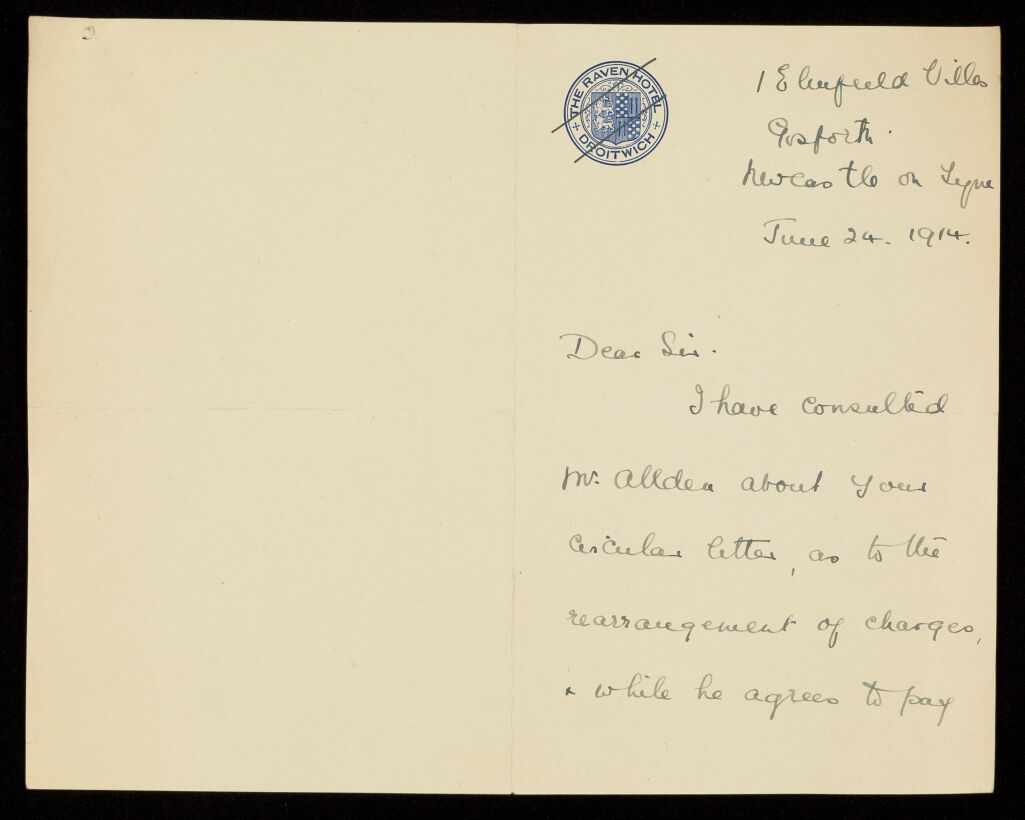 THE RAVEN HOTEL
+ DROITWICH +
1 Elmfield Villas
Gosforth.
Newcastle on Tyne
June 24. 1914.
Dear Sir.
I have consulted
Mr. Allden about your
circular letter, as to the
rearrangement of charges,
& while he agrees to pay